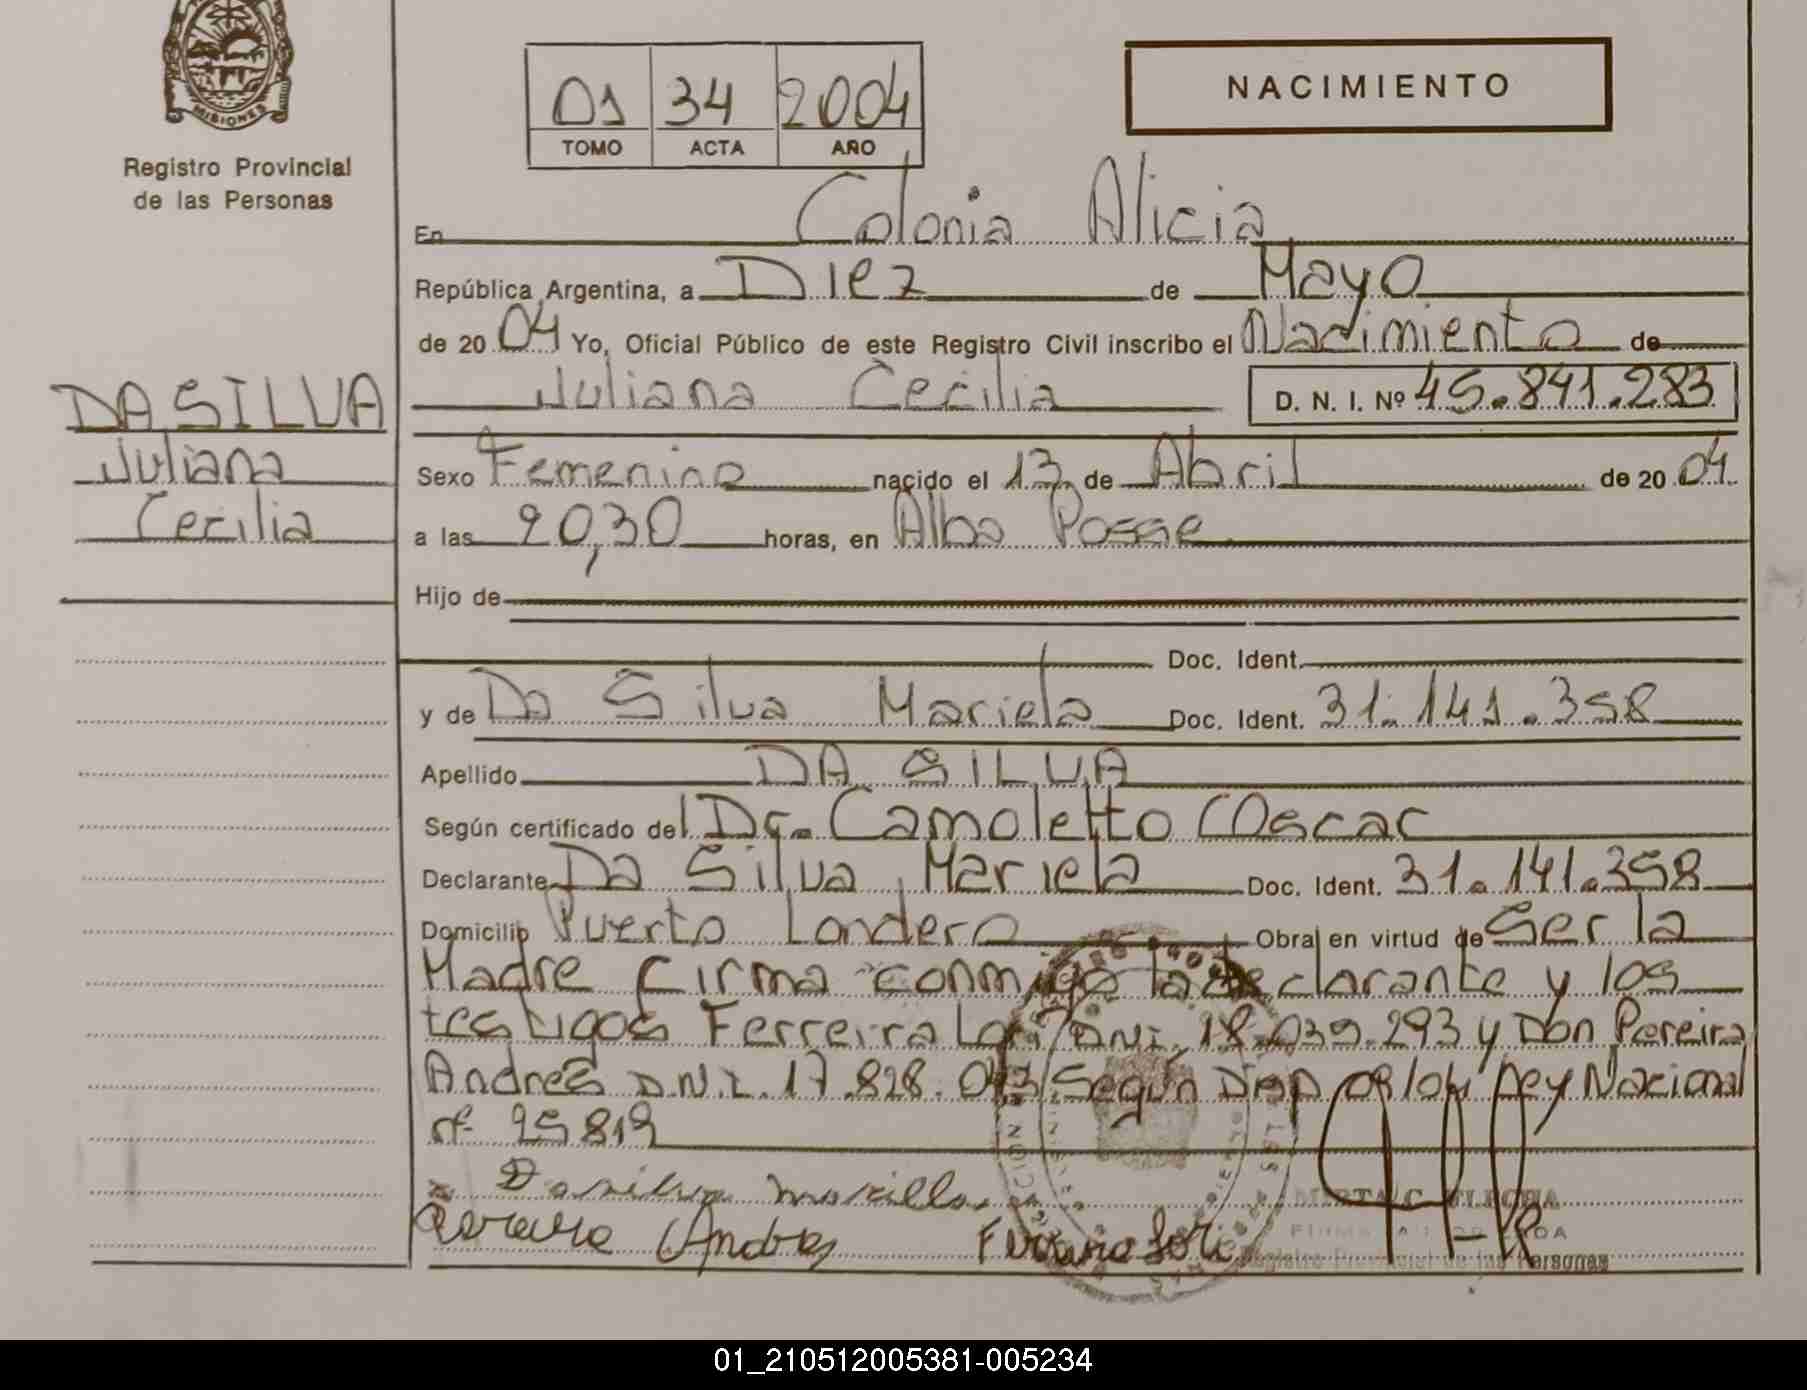 MISIONES
Registro Provincial
de las Personas
01 34 2004
TOMO ACTA AÑO
NACIMIENTO
En Colonia Alicia
República Argentina, a Diez de Mayo
de 20 04 Yo, Oficial Público de este Registro Civil inscribo el Nacimiento de
Juliana Cecilia D. N. I. Nº 45.841.283
DA SILVA
Juliana
Cecilia
Sexo Femenino nacido el 13 de Abril de 20 04
a las 20,30 horas, en Alba Posse
Hijo de
Doc. Ident.
y de Da Silva Mariela Doc. Ident. 31.141.358
Apellido DA SILVA
Según certificado del Dr. Camoletto Oscar
Declarante Da Silva, Mariela Doc. Ident. 31.141.358
Domicilio Puerto Londero Obra en virtud de Ser la
Madre firma conmigo la declarante y los
testigos Ferreira DNI. 18.039.293 y Don Pereira
Andres D.N.I. 17.828. Según Disp 08/04 Ley Nacional
nº 25819
Da silva
Andres
Registro Provincial de las Personas
01_210512005381-005234